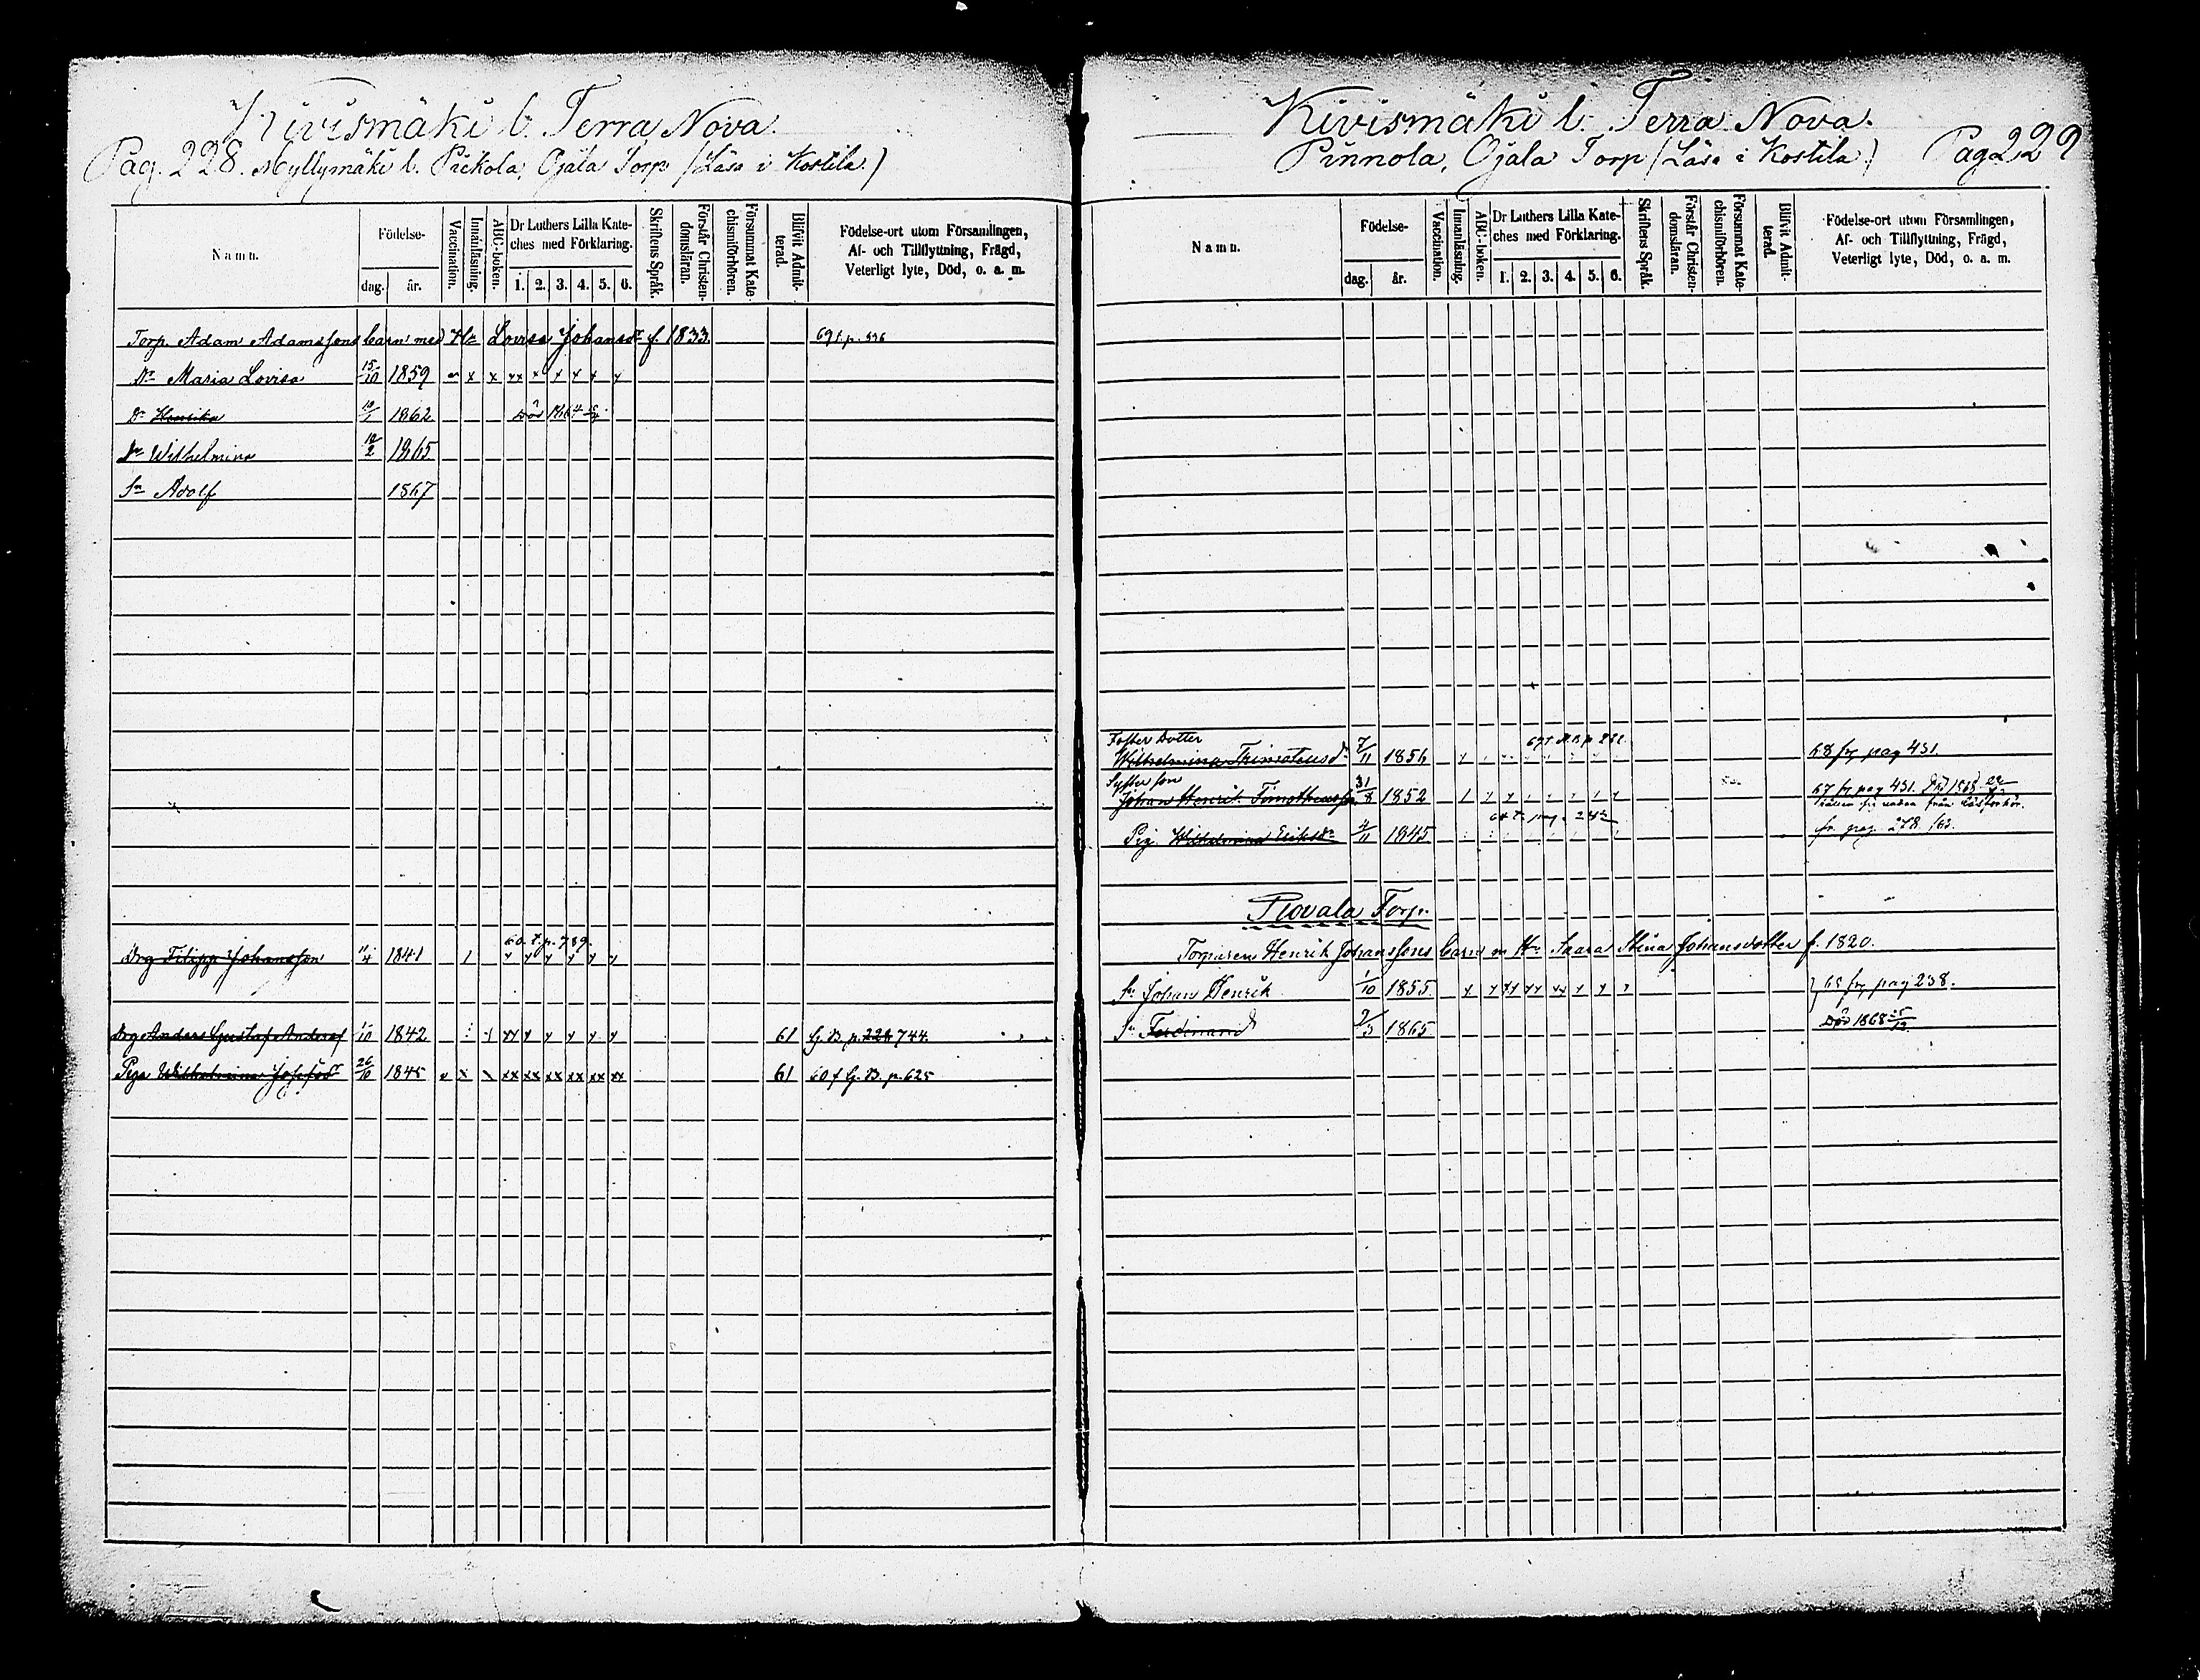 Kivismäki b. Terra Nova.
Pag. 228. Myllymäki b. Pickola, Ojala Torp (Läsa i Kostila.)
Namn.
Födelse-
dag.
år.
Vaccination.
Innanläsning.
ABC-boken.
Dr Luthers Lilla Kate-
ches med Förklaring.
1. 2. 3. 4. 5. 6.
Skriftens Språk.
Förstår Christen-
domsläran.
Försummat Kate-
chismiförhören.
Blifvit Admit-
terad.
Födelse-ort utom Församlingen,
Af- och Tillflyttning, Frägd,
Veterligt lyte, Död, o. a. m.
Torp. Adam Adamssons barn med H. Lovisa Johansdr f. 1833.
Dr Maria Lovisa 15/10 1859 x x xx x x x x x
Dr Henrika 10/1 1862 Död 1864
Dr Wilhelmina 12/2 1865
Sn Adolf 1867
60. t. p. 789.
Drg Filipp Johansson 11/4 1841
Drg Anders Gustaf Anderss 1/10 1842 61 G. B. p. 228 744.
Piga Wilhelmina Josefsdr 26/10 1845 v x x xx xx xx xx xx xx 61 60 f G. B. p. 625
Kivismäki b. Terra Nova.
Pinnola, Ojala Torp (Läsa i Kostila.) Pag 229
Namn.
Födelse-
dag.
år.
Vaccination.
Innanläsning.
ABC-boken.
Dr Luthers Lilla Kate-
ches med Förklaring.
1. 2. 3. 4. 5. 6.
Skriftens Språk.
Förstår Christen-
domsläran.
Försummat Kate-
chismiförhören.
Blifvit Admit-
terad.
Födelse-ort utom Församlingen,
Af- och Tillflyttning, Frägd,
Veterligt lyte, Död, o. a. m.
Foster Dotter
Wilhelmina Timoteusdr 7/11 1856 68 fr pag 431.
Syster son
Johan Henrik Timotheusson 31/8 1852 67 fr pag 431. Död 1868
Pig. Wilhelmina Eriksdr 4/11 1845 fr. pag. 278. /63.
Torp.
Torparen Henrik Johanssons barn m H. Saara Stina Johansdotter f. 1820.
Sn Johan Henrik 1/10 1855. 65 fr pag 238.
Sn Ferdinand 9/3 1865 Död 1868 25/12.